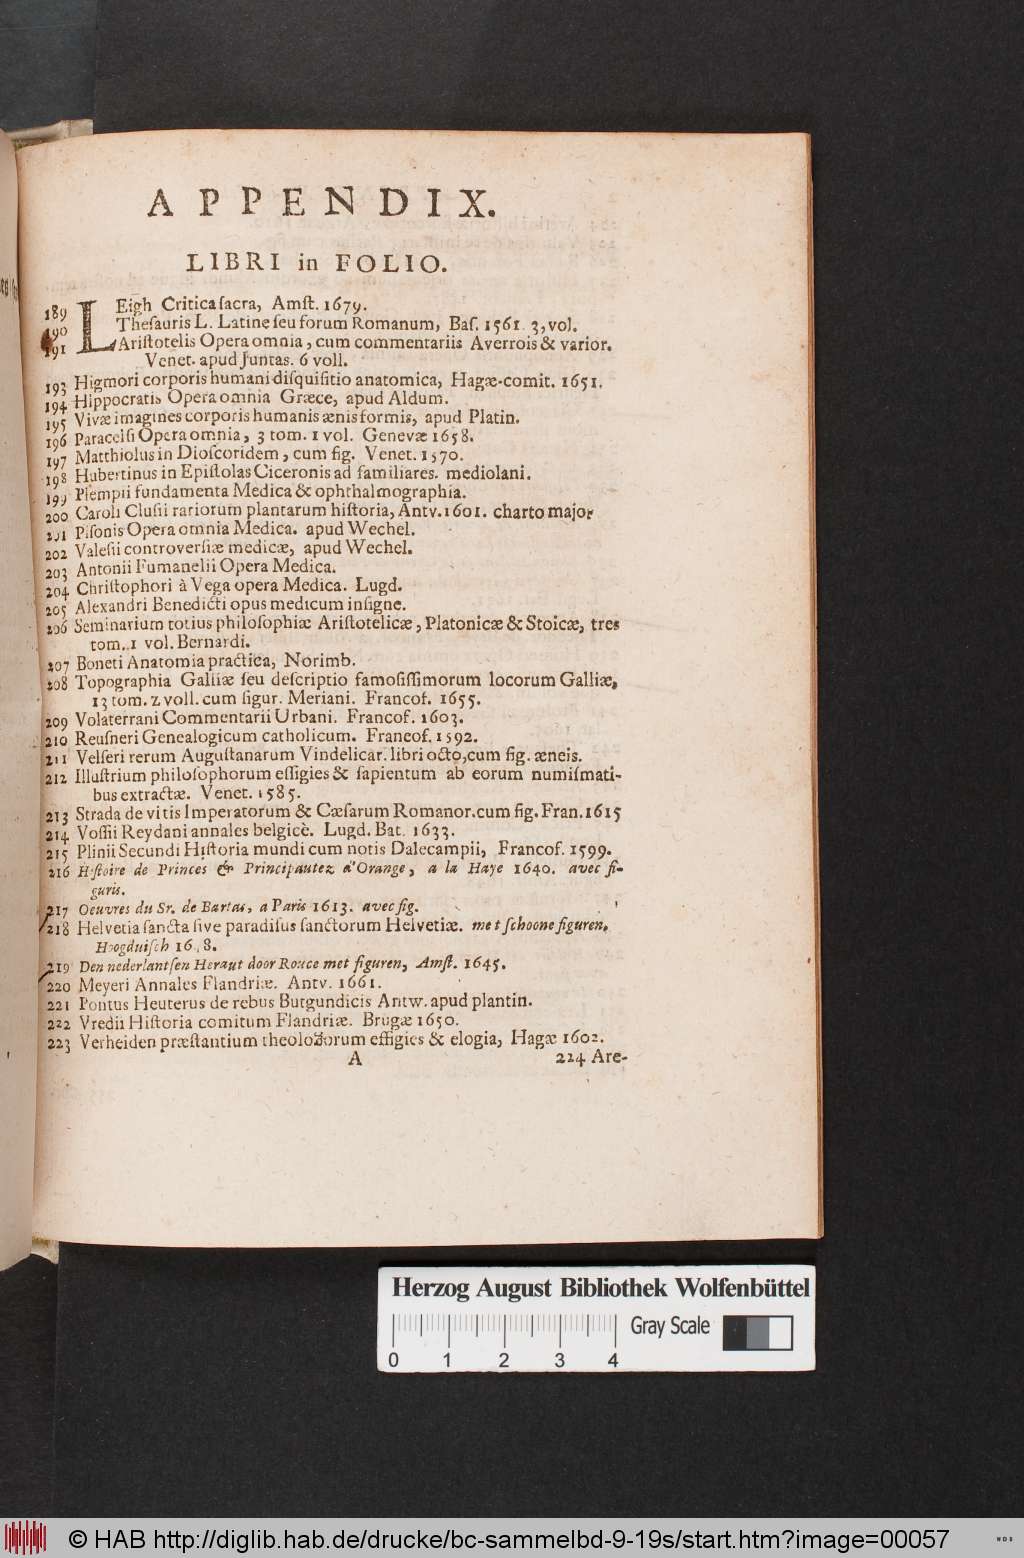 APPENDIX.
LIBRI in FOLIO.
189 LEigh Critica ſacra, Amſt. 1679.
190 Theſauris L. Latine ſeu forum Romanum, Baſ. 1561. 3, vol.
191 Ariſtotelis Opera omnia, cum commentariis Averrois & varior.
Venet. apud Juntas. 6 voll.
193 Higmori corporis humani diſquiſitio anatomica, Hagæ-comit. 1651.
194 Hippocratis Opera omnia Græce, apud Aldum.
195 Vivæ imagines corporis humanis ænis formis, apud Platin.
196 Paracelſi Opera omnia, 3 tom. 1 vol. Genevæ 1658.
197 Matthiolus in Dioſcoridem, cum fig. Venet. 1570.
198 Hubertinus in Epiſtolas Ciceronis ad familiares. mediolani.
199 Plempii fundamenta Medica & ophthalmographia.
200 Caroli Cluſii rariorum plantarum hiſtoria, Antv. 1601. charto major
201 Piſonis Opera omnia Medica. apud Wechel.
202 Valeſii controverſiæ medicæ, apud Wechel.
203 Antonii Fumanelii Opera Medica.
204 Chriſtophori à Vega opera Medica. Lugd.
205 Alexandri Benedicti opus medicum inſigne.
206 Seminarium totius philoſophiæ Ariſtotelicæ, Platonicæ & Stoicæ, tres
tom. 1 vol. Bernardi.
207 Boneti Anatomia practica, Norimb.
208 Topographia Galliæ ſeu deſcriptio famoſiſſimorum locorum Galliæ,
13 tom. 2 voll. cum figur. Meriani. Francof. 1655.
209 Volaterrani Commentarii Urbani. Francof. 1603.
210 Reuſneri Genealogicum catholicum. Francof. 1592.
211 Velſeri rerum Auguſtanarum Vindelicar. libri octo, cum fig. æneis.
212 Illuſtrium philoſophorum effigies & ſapientum ab eorum numiſmati-
bus extractæ. Venet. 1585.
213 Strada de vitis Imperatorum & Cæſarum Romanor. cum fig. Fran. 1615
214 Voſſii Reydani annales belgicè. Lugd. Bat. 1633.
215 Plinii Secundi Hiſtoria mundi cum notis Dalecampii, Francof. 1599.
216 Hiſtoire de Princes & Principautez d'Orange, a la Haye 1640. avec fi-
guris.
217 Oeuvres du Sr. de Bartas, a Paris 1613. avec fig.
218 Helvetia ſancta ſive paradiſus ſanctorum Helvetiæ. met ſchoone figuren.
Hoogduiſch 16 8.
219 Den nederlantſen Heraut door Rouce met figuren, Amſt. 1645.
220 Meyeri Annales Flandriæ. Antv. 1661.
221 Pontus Heuterus de rebus Burgundicis Antw. apud plantin.
222 Vredii Hiſtoria comitum Flandriæ. Brugæ 1650.
223 Verheiden præſtantium theologorum effigies & elogia, Hagæ 1602.
A 224 Are-
Herzog August Bibliothek Wolfenbüttel
0 1 2 3 4 Gray Scale
© HAB http://diglib.hab.de/drucke/bc-sammelbd-9-19s/start.htm?image=00057